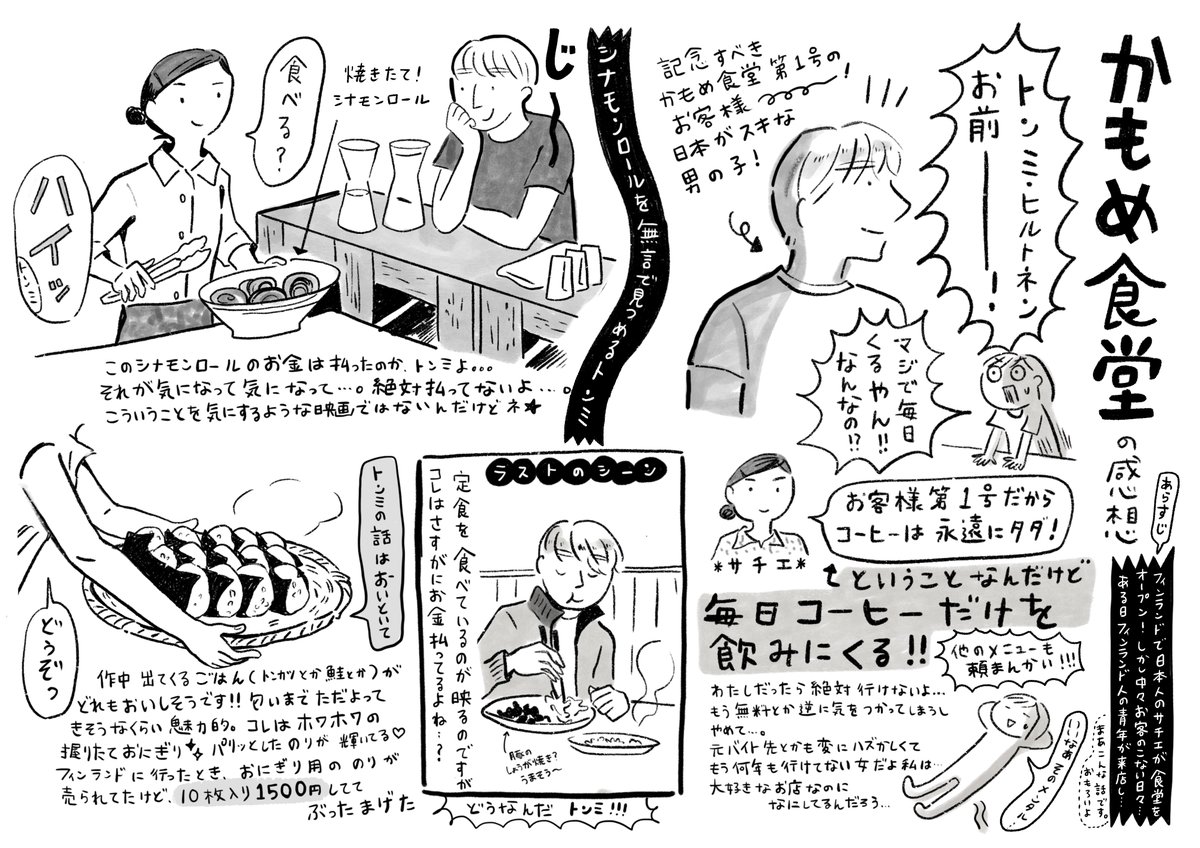 かもめ食堂
の感想
あらすじ
フィンランドで日本人のサチエが食堂を
オープン!しかし中々お客のこない日々…
ある日フィンランド人の青年が来店し…
まあこんな話です。
おもろいよ
トンミ・ヒルトネン
お前——!
記念すべき
かもめ食堂第1号の
お客様
日本がスキな
男の子!
マジで毎日
くるやん!!
なんなの!?
お客様第1号だから
コーヒーは永遠にタダ!
*サチエ*
ということなんだけど
毎日コーヒーだけを
飲みにくる!!
他のメニューも
頼まんかい!!!
わたしだったら絶対行けないよ…
もう無料とか逆に気をつかってしまうし
やめて…。
元バイト先とかも変にハズかしくて
もう何年も行けてない女だよ私は…
大好きなお店なのに
なにしてるんだろう…
いいなあそのメンタル
シナモンロールを無言で見つめるトンミ
じ——
焼きたて!
シナモンロール
食べる?
ハイッ
トンミ
このシナモンロールのお金は払ったのか、トンミよ。。。
それが気になって気になって…。絶対払ってないよ…。
こういうことを気にするような映画ではないんだけどネ★
ラストのシーン
定食を食べているのが映るのですが
コレはさすがにお金払ってるよね…?
豚の
しょうが焼き?
うまそう〜
どうなんだ トンミ!!!
トンミの話はおいといて
どうぞっ
作中出てくるごはん(トンカツとか鮭とか)が
どれもおいしそうです!!匂いまでただよって
きそうなくらい魅力的。コレはホワホワの
握りたておにぎり パリッとしたのりが輝いてる♡
フィンランドに行ったとき、おにぎり用ののりが
売られてたけど、10枚入り1500円してて
ぶったまげた